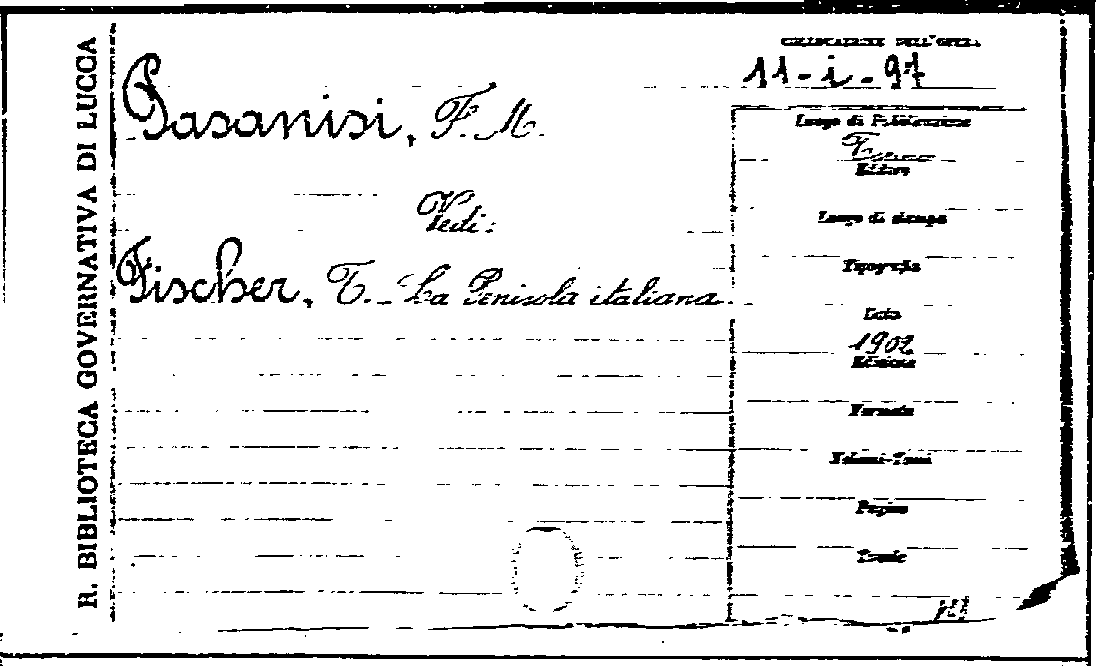 R. BIBLIOTECA GOVERNATIVA DI LUCCA
COLLOCAZIONE DELL'OPERA
11-i-97
Pasanisi, F. M.
Vedi:
Fischer, T. - La Penisola italiana
Luogo di Pubblicazione
Editore
Luogo di stampa
Tipografia
Data
1902
Edizione
Formato
Volumi-Tomi
Pagine
Tavole